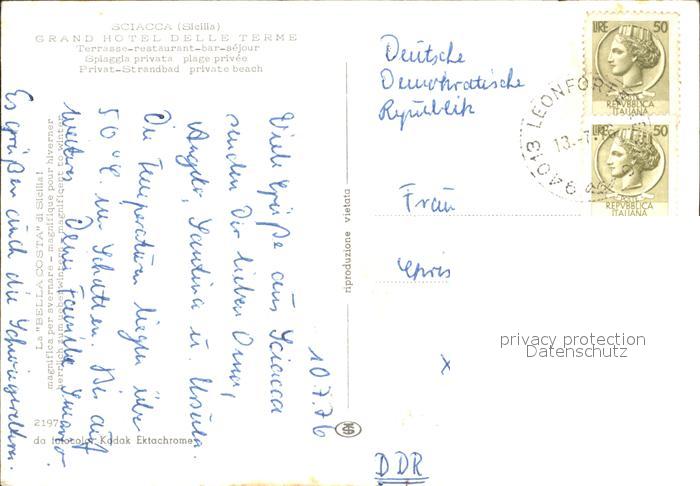 SCIACCA (Sicilia)
GRAND HOTEL DELLE TERME
Terrasse-restaurant-bar-séjour
Spiaggia privata plage privée
Privat-Strandbad private beach
La "BELLA COSTA" di Sicilia!
magnifica per svernare - magnifique pour hiverner
herrlich zum ueberwintern - magnificent to winter
2197
da fotocolor Kodak Ektachrome
riproduzione vietata
10.7.76
Viele Grüße aus Sciacca
senden Dir lieben Oma,
Angelo, Santina u. Ursula.
Die Temperaturen liegen über
50 °C. im Schatten. Bis auf
weiteres Deine Familie
Es grüßen auch die Schwiegereltern.
Deutsche
Demokratische
Republik
Frau
Chris
x
DDR
LIRE 50
POSTE
REPVBBLICA
ITALIANA
LIRE 50
REPVBBLICA
ITALIANA
94013 LEONFORTE
13.-7.
privacy protection
Datenschutz